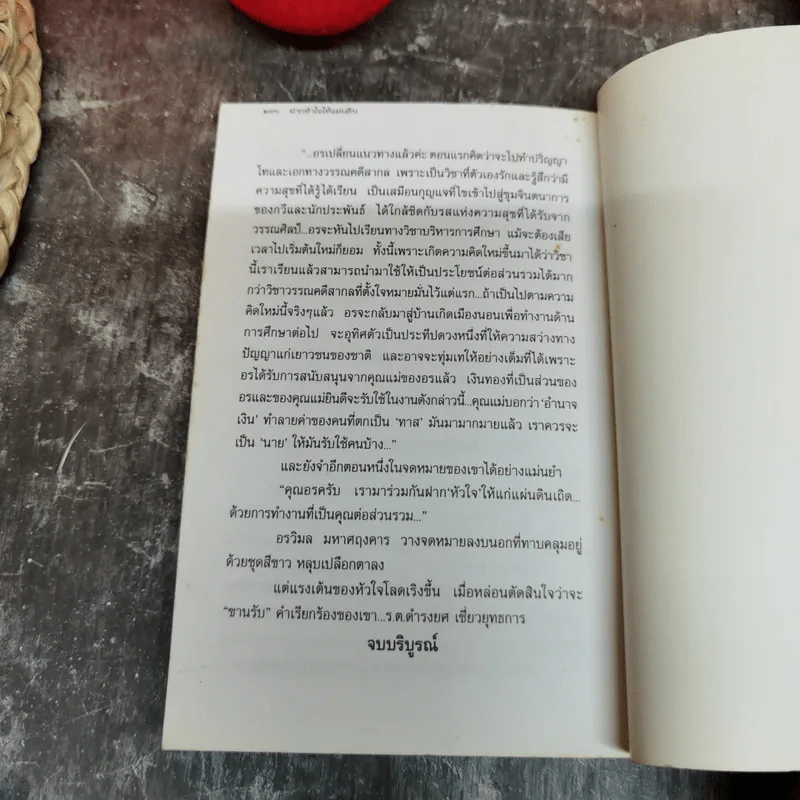 ฝากหัวใจให้แผ่นดิน
“...อรเปลี่ยนแนวทางแล้วค่ะ ตอนแรกคิดว่าจะไปทำปริญญา
โทและเอกทางวรรณคดีสากล เพราะเป็นวิชาที่ตัวเองรักและรู้สึกว่ามี
ความสุขที่ได้รู้ได้เรียน เป็นเสมือนกุญแจที่ไขเข้าไปสู่ขุมจินตนาการ
ของกวีและนักประพันธ์ ได้ใกล้ชิดกับรสแห่งความสุขที่ได้รับจาก
วรรณศิลป์...อรจะหันไปเรียนทางวิชาบริหารการศึกษา แม้จะต้องเสีย
เวลาไปเริ่มต้นใหม่ก็ยอม ทั้งนี้เพราะเกิดความคิดใหม่ขึ้นมาได้ว่าวิชา
นี้เราเรียนแล้วสามารถนำมาใช้ให้เป็นประโยชน์ต่อส่วนรวมได้มาก
กว่าวิชาวรรณคดีสากลที่ตั้งใจหมายมั่นไว้แต่แรก...ถ้าเป็นไปตามความ
คิดใหม่นี้จริงๆแล้ว อรจะกลับมาสู่บ้านเกิดเมืองนอนเพื่อทำงานด้าน
การศึกษาต่อไป จะอุทิศตัวเป็นประทีปดวงหนึ่งที่ให้ความสว่างทาง
ปัญญาแก่เยาวชนของชาติ และอาจจะทุ่มเทให้อย่างเต็มที่ได้เพราะ
อรได้รับการสนับสนุนจากคุณแม่ของอรแล้ว เงินทองที่เป็นส่วนของ
อรและของคุณแม่ยินดีจะรับใช้ในงานดังกล่าวนี้...คุณแม่บอกว่า ‘อำนาจ
เงิน’ ทำลายค่าของคนที่ตกเป็น ‘ทาส’ มันมามากมายแล้ว เราควรจะ
เป็น ‘นาย’ ให้มันรับใช้คนบ้าง...”
และยังจำอีกตอนหนึ่งในจดหมายของเขาได้อย่างแม่นยำ
“คุณอรครับ เรามาร่วมกันฝาก ‘หัวใจ’ ให้แก่แผ่นดินเถิด...
ด้วยการทำงานที่เป็นคุณต่อส่วนรวม...”
อรวิมล มหาศฤงคาร วางจดหมายลงบนอกที่ทาบคลุมอยู่
ด้วยชุดสีขาว หลุบเปลือกตาลง
แต่แรงเต้นของหัวใจโลดเริงขึ้น เมื่อหล่อนตัดสินใจว่าจะ
“ขานรับ” คำเรียกร้องของเขา...ร.ต.ดำรงยศ เชี่ยวยุทธการ
จบบริบูรณ์